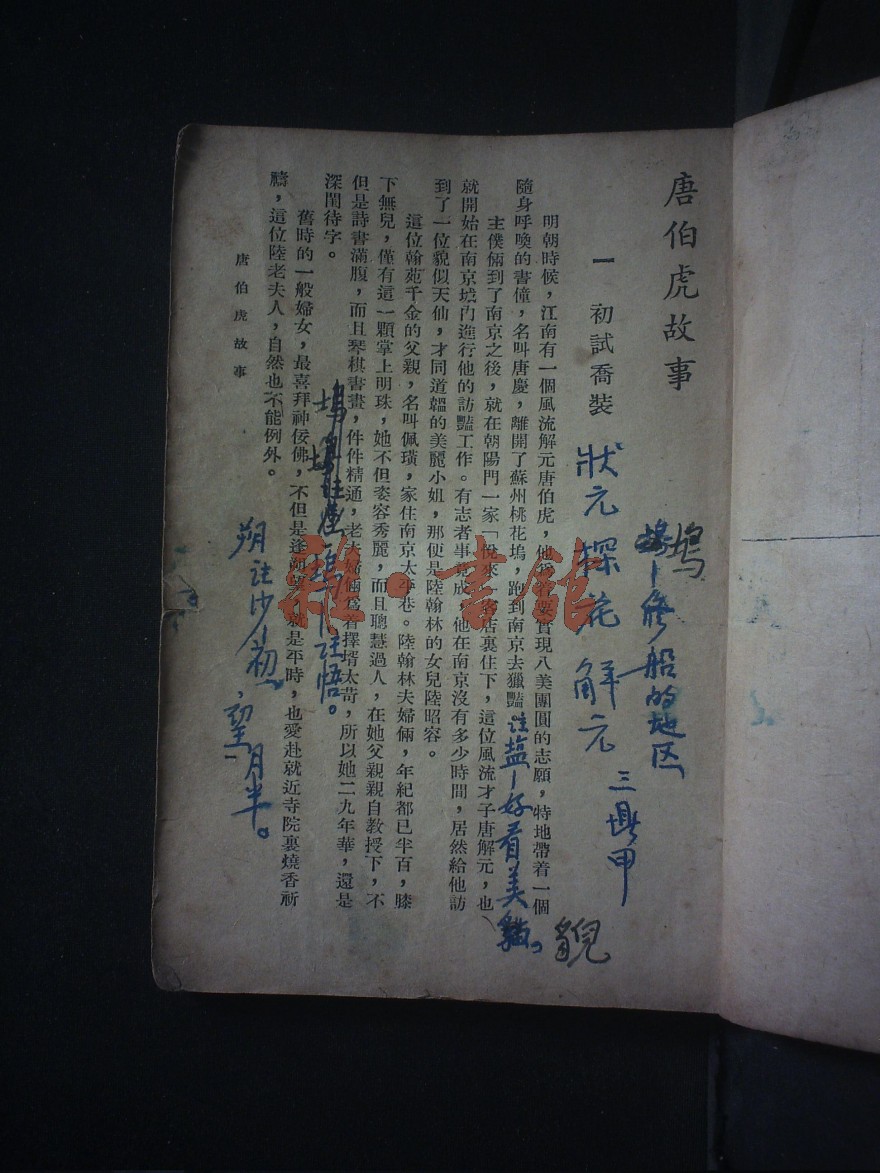 唐伯虎故事
一 初試喬裝
明朝時候，江南有一個風流解元唐伯虎，他實現八美團圓的志願，特地帶着一個
隨身呼喚的書僮，名叫唐慶，離開了蘇州桃花塢，跑到南京去獵豔
主僕倆到了南京之後，就在朝陽門一家「悅來」客店裏住下，這位風流才子唐解元，也
就開始在南京城門進行他的訪豔工作。有志者事竟成，他在南京沒有多少時間，居然給他訪
到了一位貌似天仙，才同道韞的美麗小姐，那便是陸翰林的女兒陸昭容。
這位翰苑千金的父親，名叫佩璜，家住南京太平巷。陸翰林夫婦倆，年紀都已半百，膝
下無兒，僅有這一顆掌上明珠，她不但姿容秀麗，而且聰慧過人，在她父親親自教授下，不
但是詩書滿腹，而且琴棋書畫，件件精通，老夫婦倆爲着擇壻太苛，所以她二九年華，還是
深閨待字。
舊時的一般婦女，最喜拜神佞佛，不但是逢朔望，就是平時，也愛赴就近寺院裏燒香祈
禱，這位陸老夫人，自然也不能例外。
唐伯虎故事
塢
修船的地区
狀元探花解元
三鼎甲
註盐－好看美
貌
塢註悟。
朔註沙－初一
望－月半。
雜·書館